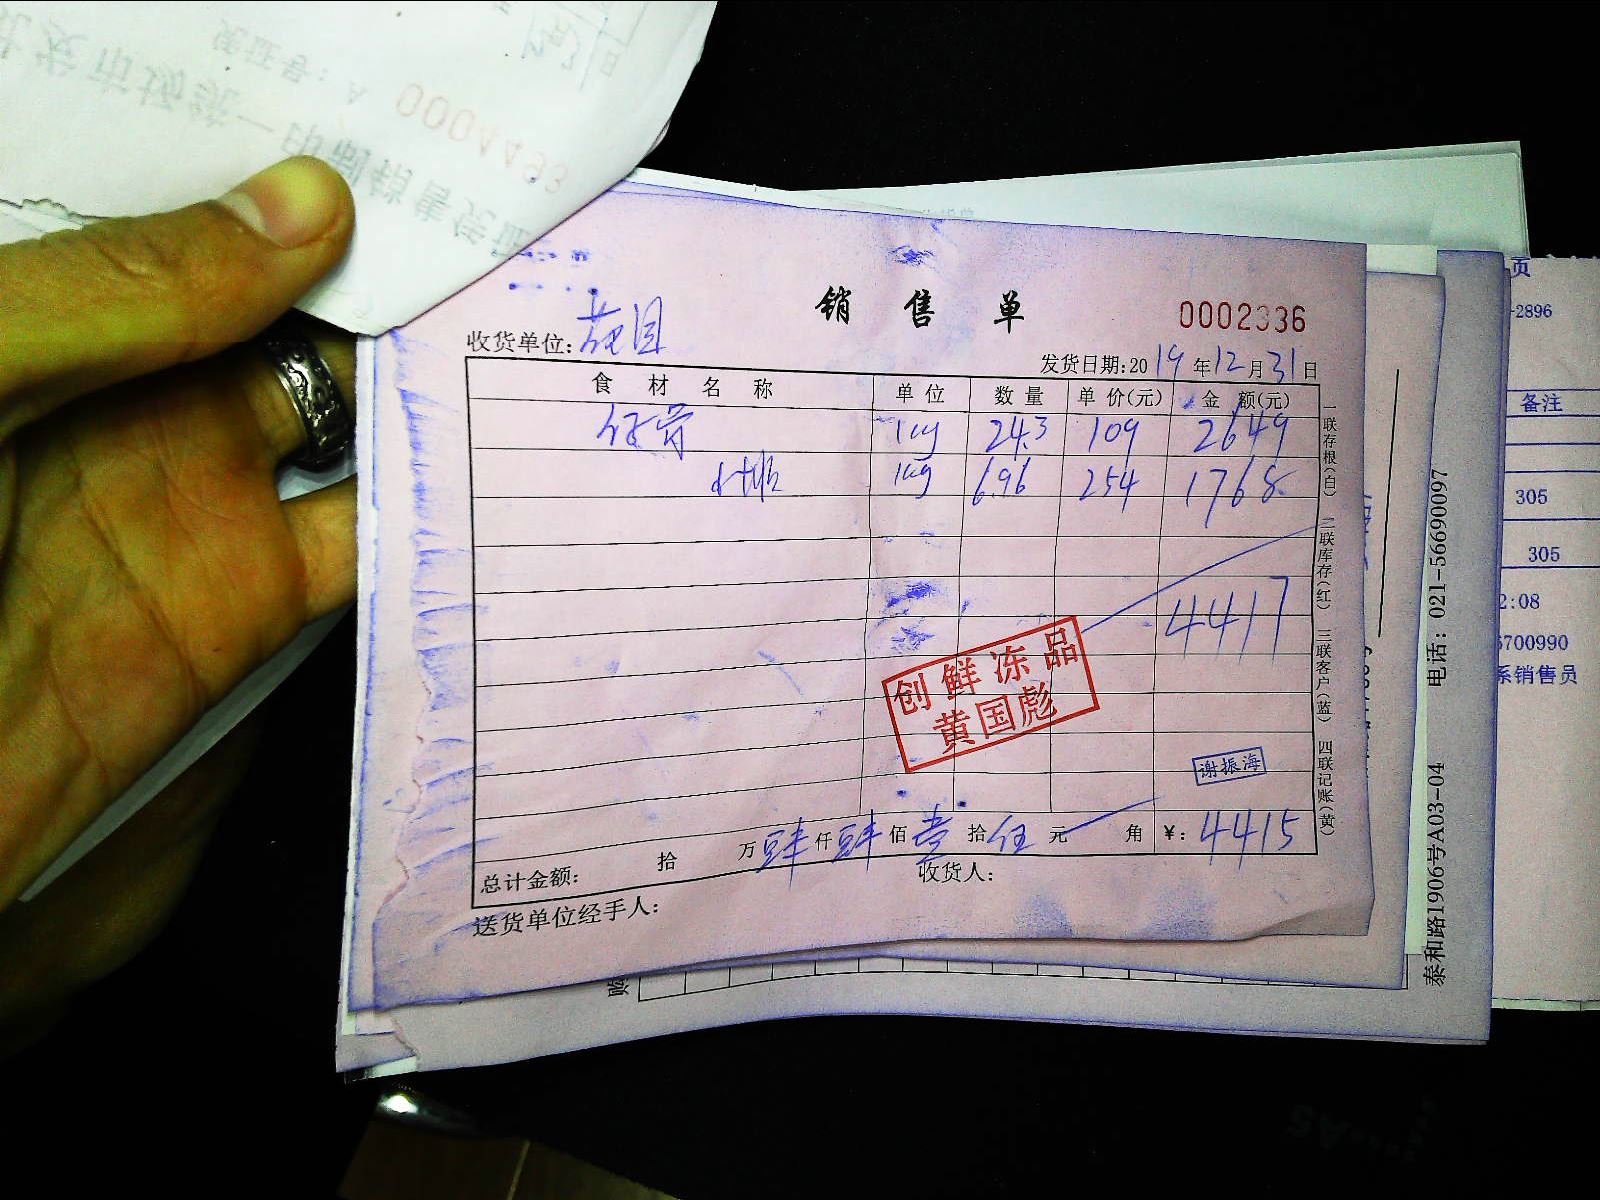 销售单
0002336
收货单位：花园
发货日期：2019年12月31日
食材名称 单位 数量 单价(元) 金额(元)
1kg 24.3 109 2649
1kg 6.96 254 1768
4417
创鲜冻品
黄国彪
谢振海
总计金额： 拾 万肆仟肆佰壹拾伍元 角 ¥：4415
收货人：
送货单位经手人：
一联存根(白) 二联库存(红) 三联客户(蓝) 四联记账(黄)
0004493
泰和路1906号A03-04 电话：021-56690097
页
-2896
备注
305
305
2:08
5700990
系销售员